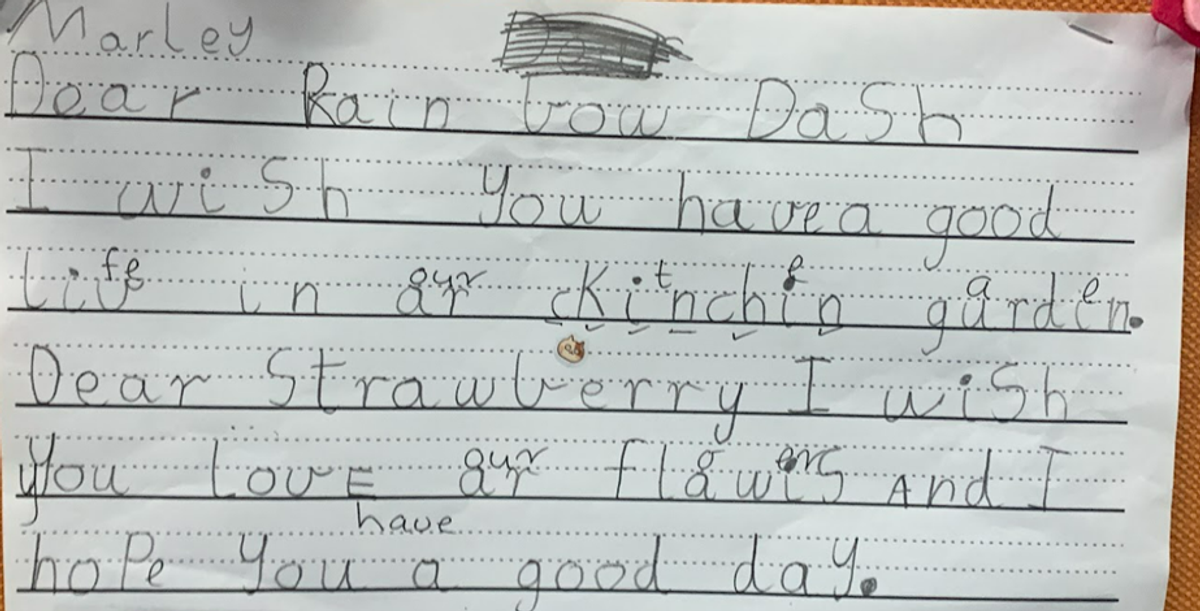 Marley
Dear Rain bow Dash
I wish you have a good
life in our kitchen garden.
Dear Strawberry I wish
you love our flowers And I
have
hope you a good day.